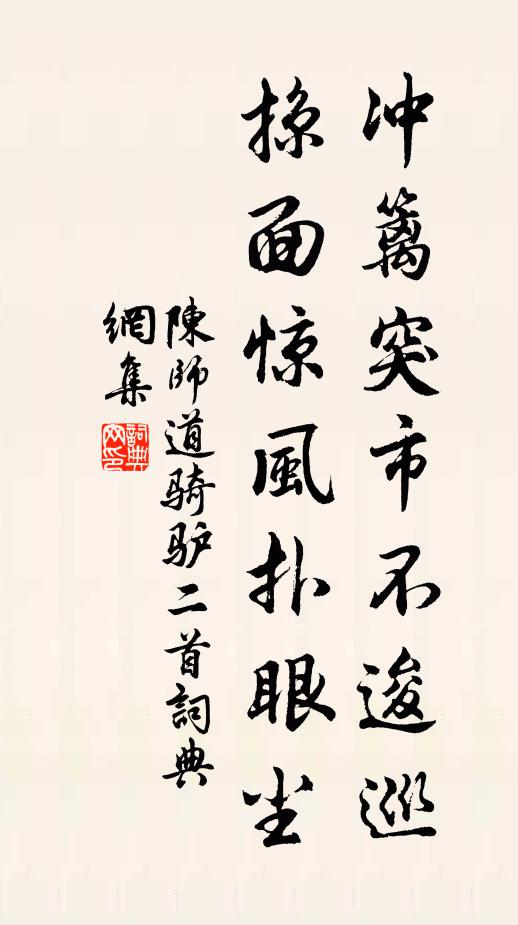 冲篱突市不逡巡
掠面惊風扑眼尘
陳師道骑驴二首詞典
網集
詞典
网印